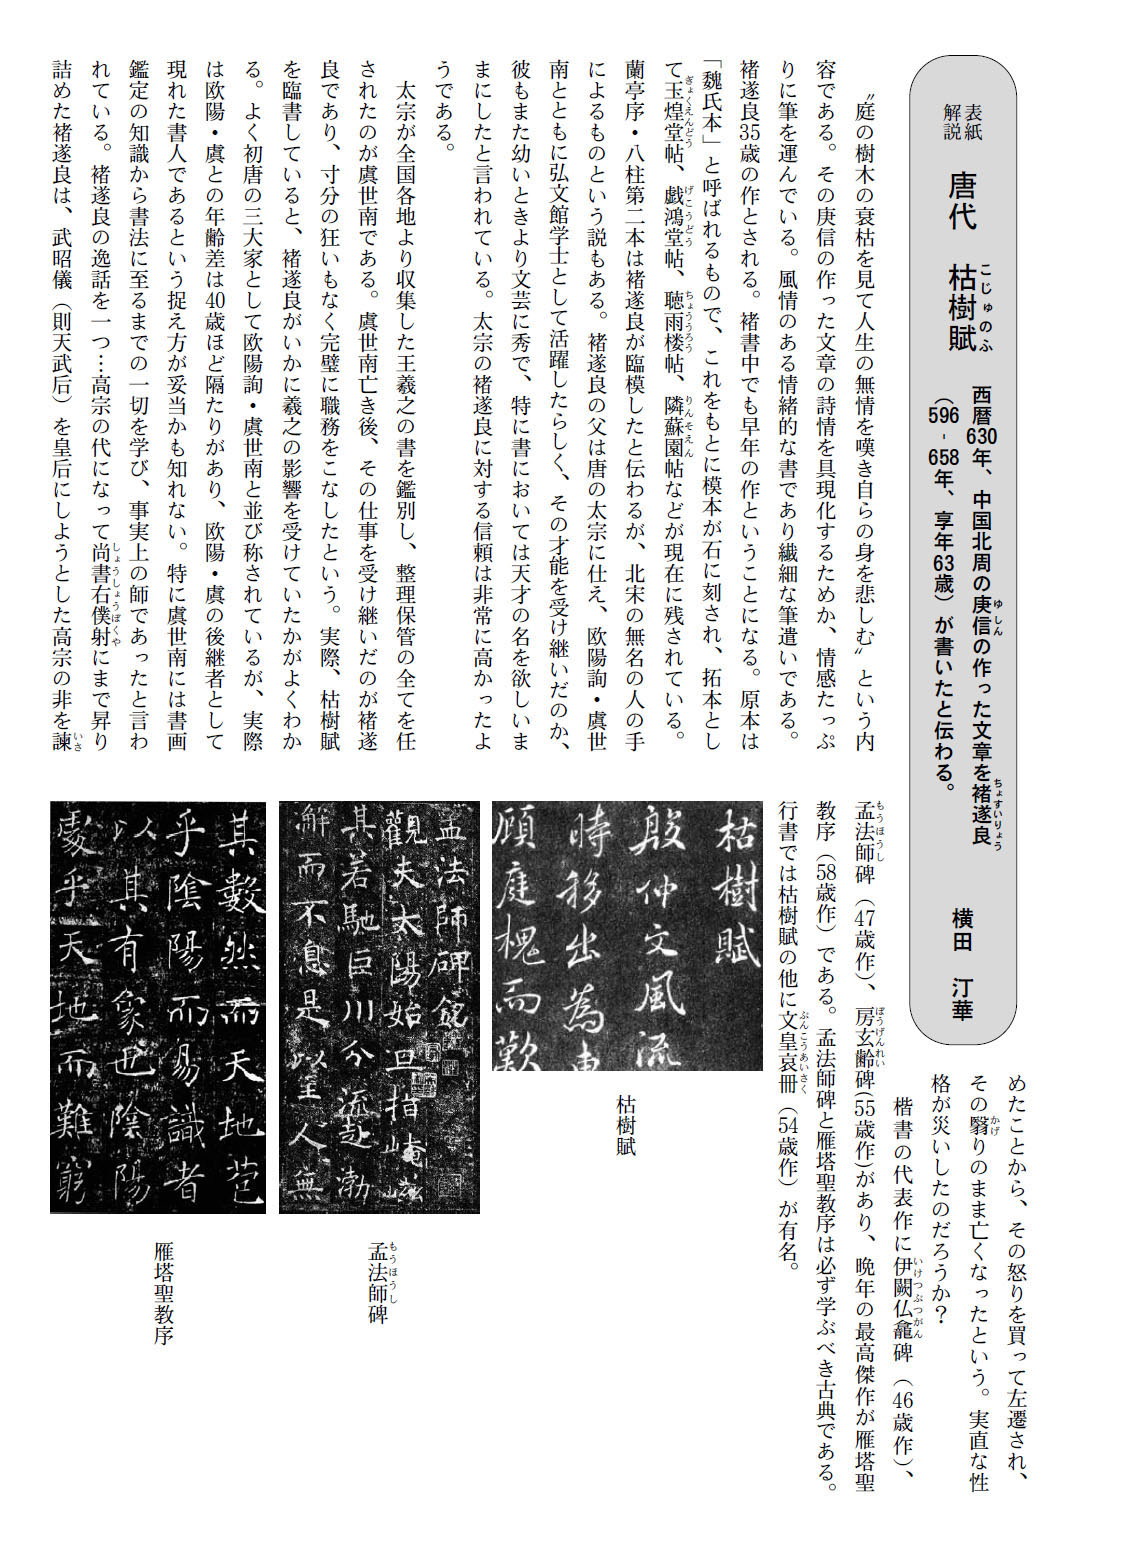 表紙
解説
唐代 枯樹賦
こじゅのふ
西暦630年、中国北周の庾信の作った文章を褚遂良
ゆしん
ちょすいりょう
(596-658年、享年63歳)が書いたと伝わる。
横田 汀華
〝庭の樹木の衰枯を見て人生の無情を嘆き自らの身を悲しむ〟という内
容である。その庾信の作った文章の詩情を具現化するためか、情感たっぷ
りに筆を運んでいる。風情のある情緒的な書であり繊細な筆遣いである。
褚遂良35歳の作とされる。褚書中でも早年の作ということになる。原本は
「魏氏本」と呼ばれるもので、これをもとに模本が石に刻され、拓本とし
て玉煌堂帖、戯鴻堂帖、聴雨楼帖、隣蘇園帖などが現在に残されている。
ぎょくえんどう
げこうどう
ちょううろう
りんそえん
蘭亭序・八柱第二本は褚遂良が臨模したと伝わるが、北宋の無名の人の手
によるものという説もある。褚遂良の父は唐の太宗に仕え、欧陽詢・虞世
南とともに弘文館学士として活躍したらしく、その才能を受け継いだのか、
彼もまた幼いときより文芸に秀で、特に書においては天才の名を欲しいま
まにしたと言われている。太宗の褚遂良に対する信頼は非常に高かったよ
うである。
太宗が全国各地より収集した王羲之の書を鑑別し、整理保管の全てを任
されたのが虞世南である。虞世南亡き後、その仕事を受け継いだのが褚遂
良であり、寸分の狂いもなく完璧に職務をこなしたという。実際、枯樹賦
を臨書していると、褚遂良がいかに羲之の影響を受けていたかがよくわか
る。よく初唐の三大家として欧陽詢・虞世南と並び称されているが、実際
は欧陽・虞との年齢差は40歳ほど隔たりがあり、欧陽・虞の後継者として
現れた書人であるという捉え方が妥当かも知れない。特に虞世南には書画
鑑定の知識から書法に至るまでの一切を学び、事実上の師であったと言わ
れている。褚遂良の逸話を一つ…高宗の代になって尚書右僕射にまで昇り
しょうしょうぼくや
詰めた褚遂良は、武昭儀(則天武后)を皇后にしようとした高宗の非を諫
いさ
めたことから、その怒りを買って左遷され、
その翳りのまま亡くなったという。実直な性
かげ
格が災いしたのだろうか?
楷書の代表作に伊闕仏龕碑(46歳作)、
いけつぶつがん
孟法師碑(47歳作)、房玄齢碑(55歳作)があり、晩年の最高傑作が雁塔聖
もうほうし
ぼうげんれい
教序(58歳作)である。孟法師碑と雁塔聖教序は必ず学ぶべき古典である。
行書では枯樹賦の他に文皇哀冊(54歳作)が有名。
ぶんこうあいさく
枯樹賦
殷仲文風流
時移出為東
顧庭槐而歎
枯樹賦
孟法師碑銘
觀夫太陽始旦指崦嵫
其若馳巨川分流赴渤
解而不息是以至人無
孟法師碑
もうほうし
其數然而天地苞
乎陰陽而易識者
以其有象也陰陽
處乎天地而難窮
雁塔聖教序